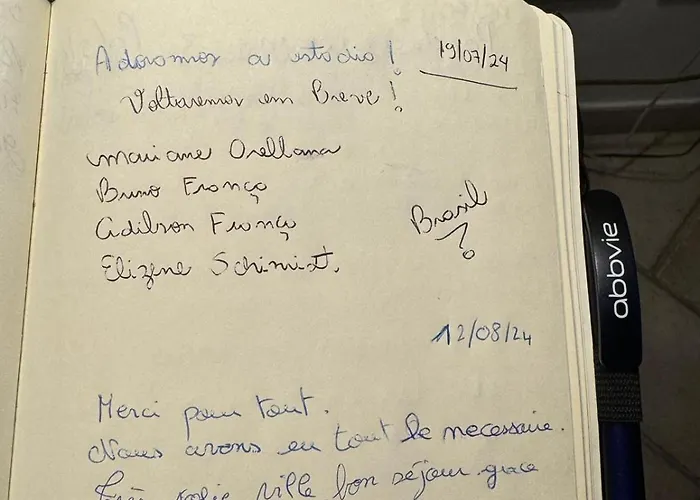 Adoramos a estadia! 19/07/24
Voltaremos em Breve!
Mariane Orellana
Bruno França
Adilson França
Elizene Schimidt.
Brasil
12/08/24
Merci pour tout.
Nous avons eu tout le necessaire.
Très jolie ville bon séjour grace
abbvie